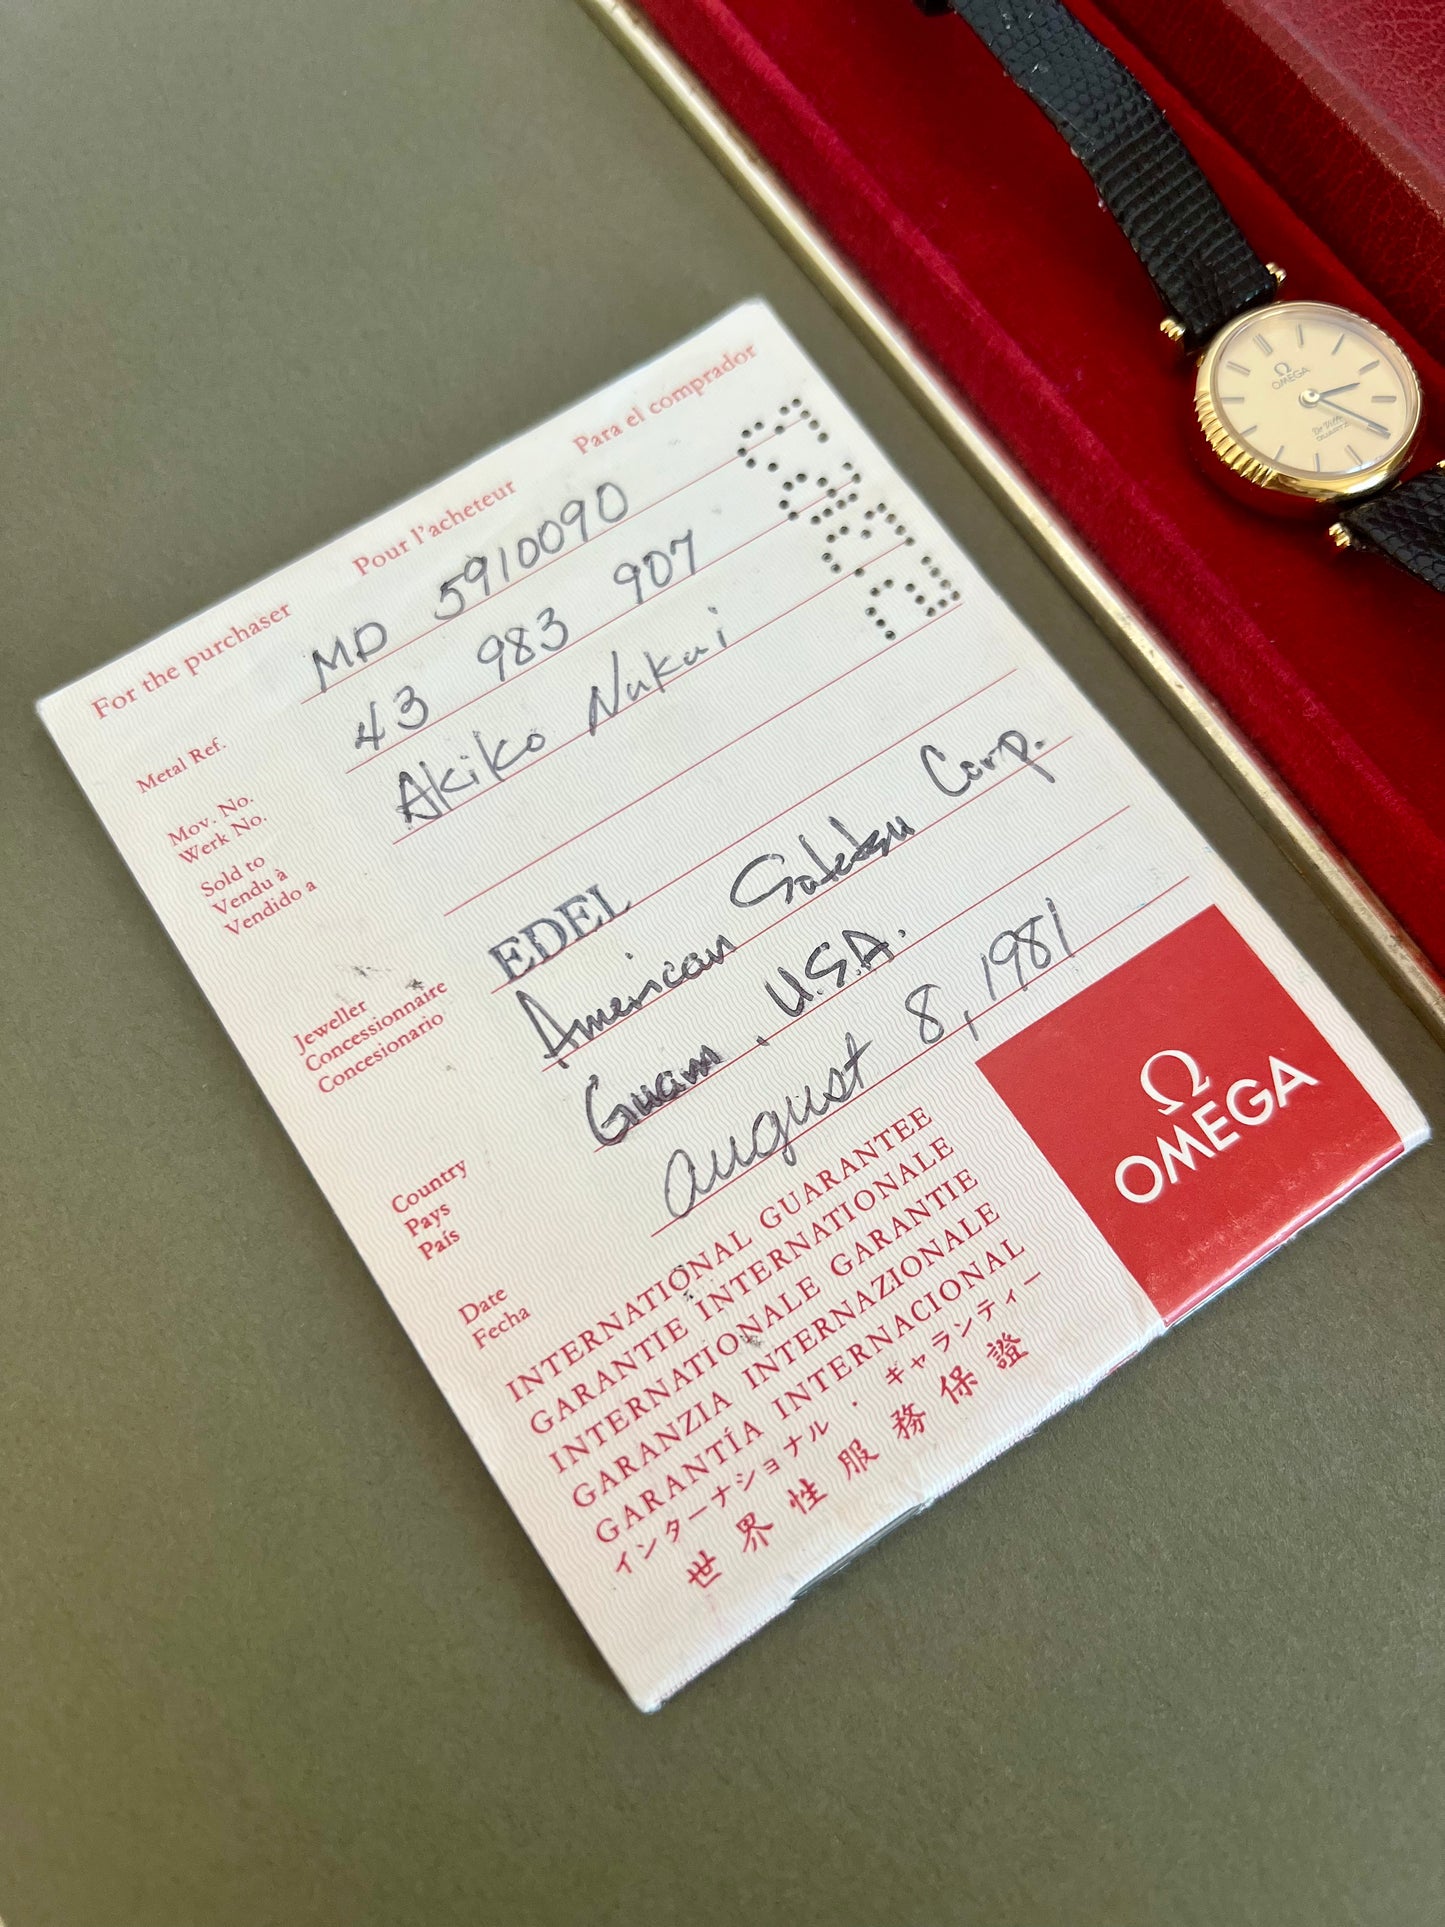 For the purchaser Pour l'acheteur Para el comprador
Metal Ref. MD 5910090
Mov. No.
Werk No. 43 983 907
Sold to
Vendu à
Vendido a
Akiko Nukui
EDEL
Jeweller
Concessionnaire
Concesionario
American Corp.
Country
Pays
País
Guam, U.S.A.
Date
Fecha
August 8, 1981
INTERNATIONAL GUARANTEE
GARANTIE INTERNATIONALE
INTERNATIONALE GARANTIE
GARANZIA INTERNAZIONALE
GARANTÍA INTERNACIONAL
インターナショナル・ギャランティー
世界性服務保證
Ω
OMEGA
Ω
OMEGA
De Ville
QUARTZ